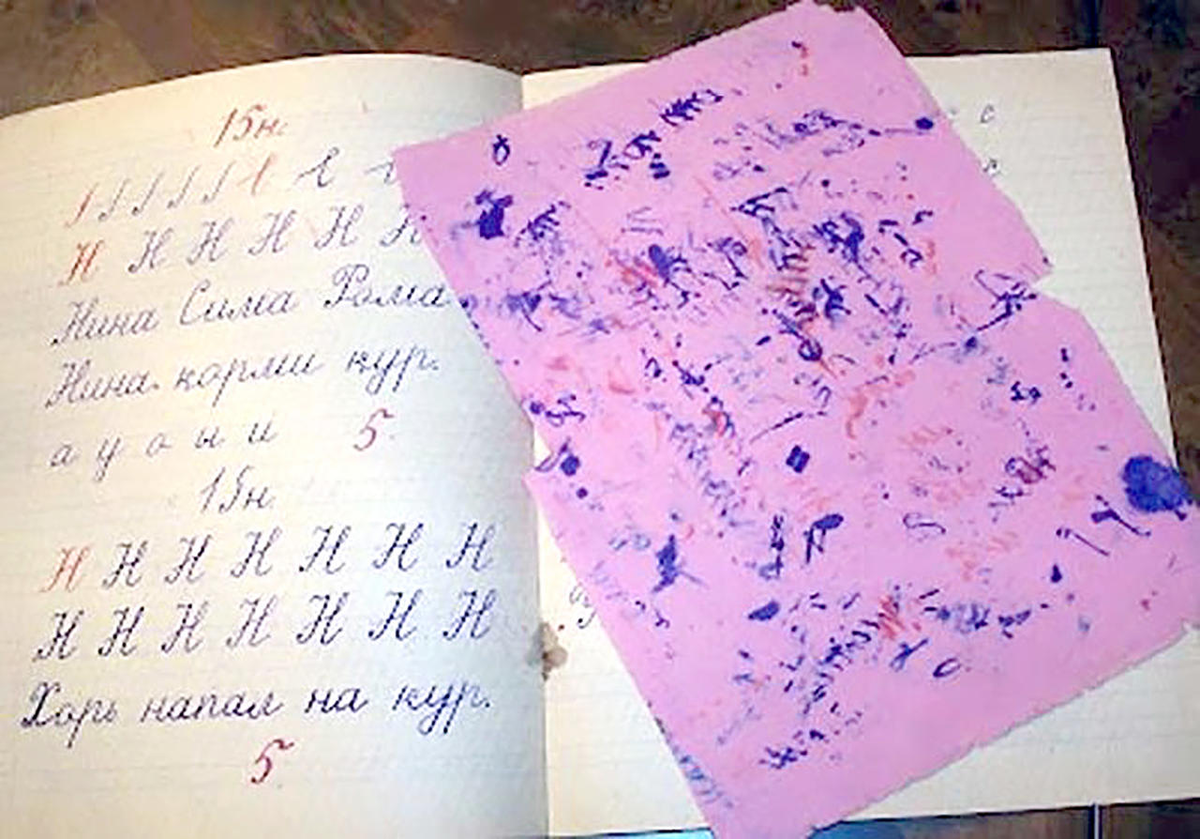 15н.
Н Н Н Н Н Н
Нина Сима Рома
Нина корми кур.
а у о ы и 5
15н
Н Н Н Н Н Н Н
Н Н Н Н Н Н Н
Хорь напал на кур.
5
с